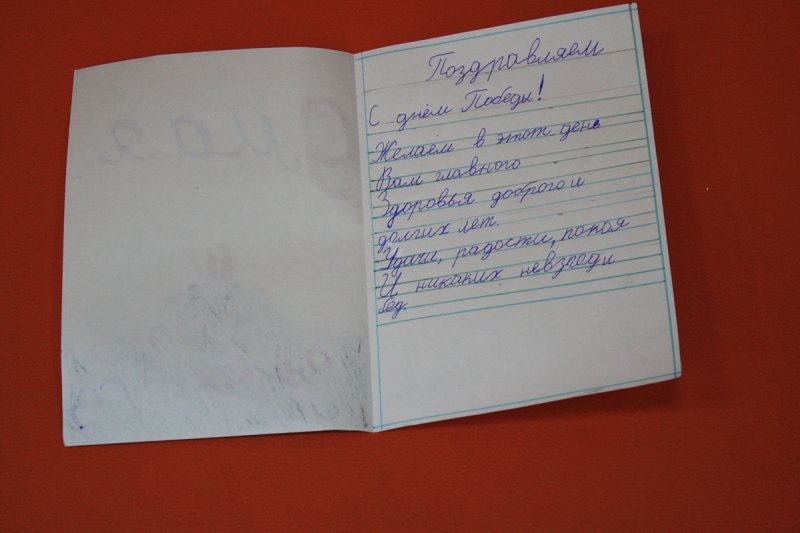 9 мая
Поздравляем
С днём Победы!
Желаем в этот день
Вам главного
Здоровья доброго и
долгих лет.
Удачи, радости, покоя
И никаких невзгод и
бед.